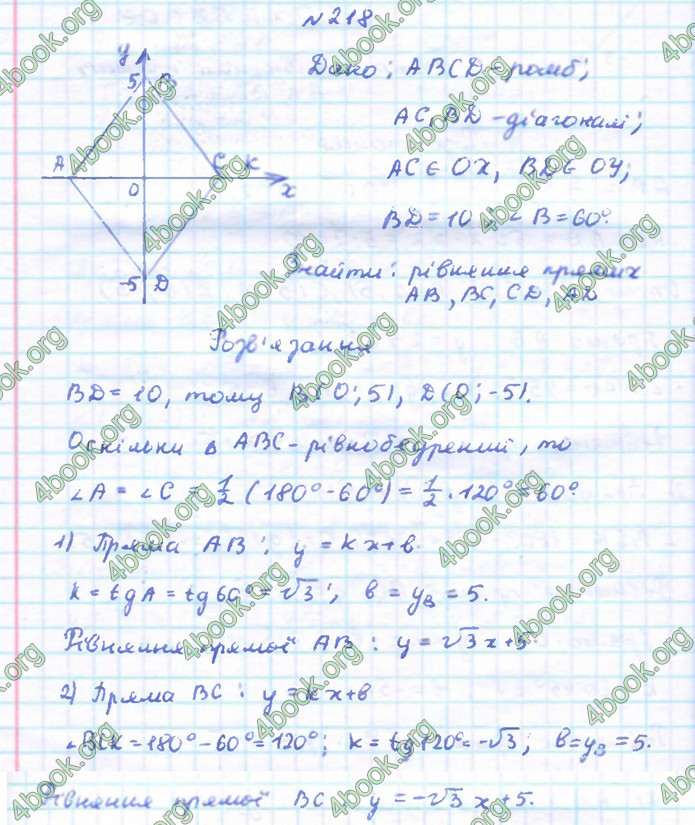 N218
Дано: ABCD - ромб;
AC, BD - діагоналі;
AC ∈ OX, BD ∈ OY;
BD = 10, ∠B = 60°.
Знайти: рівняння прямих
AB, BC, CD, AD
y
5
B
A
C
K
O
x
-5
D
Розв'язання
BD = 10, тому B(0; 5), D(0; -5).
Оскільки в ABC - рівнобедрений, то
∠A = ∠C = 1/2 (180° - 60°) = 1/2 · 120° = 60°.
1) Пряма AB: y = kx + b.
k = tg A = tg 60° = √3; b = yB = 5.
Рівняння прямої AB: y = √3x + 5
2) Пряма BC: y = kx + b
∠BCK = 180° - 60° = 120°; k = tg 120° = -√3; b = yB = 5.
Рівняння прямої BC: y = -√3x + 5.
4book.org